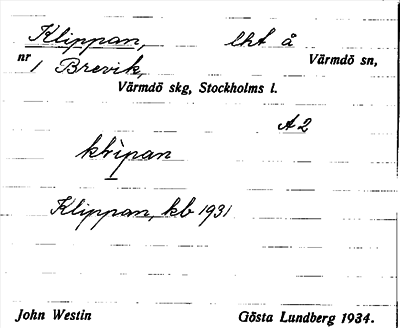 Klippan, lht å
nr 1 Brevik, Värmdö sn,
Värmdö skg, Stockholms l.
A2
klìpan
Klippan, kb 1931
John Westin Gösta Lundberg 1934.